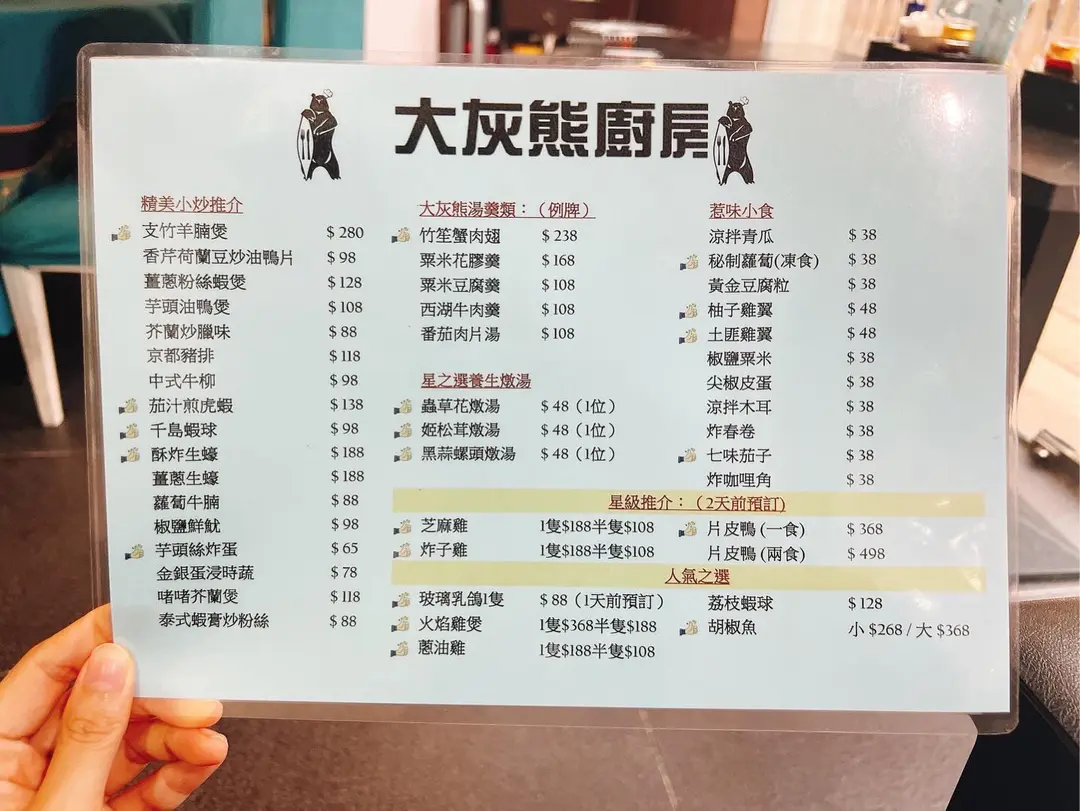 大灰熊廚房
精美小炒推介
支竹羊腩煲 $ 280
香芹荷蘭豆炒油鴨片 $ 98
薑蔥粉絲蝦煲 $ 128
芋頭油鴨煲 $ 108
芥蘭炒臘味 $ 88
京都豬排 $ 118
中式牛柳 $ 98
茄汁煎虎蝦 $ 138
千島蝦球 $ 98
酥炸生蠔 $ 188
薑蔥生蠔 $ 188
蘿蔔牛腩 $ 88
椒鹽鮮魷 $ 98
芋頭絲炸蛋 $ 65
金銀蛋浸時蔬 $ 78
啫啫芥蘭煲 $ 118
泰式蝦膏炒粉絲 $ 88
大灰熊湯羹類：（例牌）
竹笙蟹肉翅 $ 238
粟米花膠羹 $ 168
粟米豆腐羹 $ 108
西湖牛肉羹 $ 108
番茄肉片湯 $ 108
星之選養生燉湯
蟲草花燉湯 $ 48（1位）
姬松茸燉湯 $ 48（1位）
黑蒜螺頭燉湯 $ 48（1位）
惹味小食
涼拌青瓜 $ 38
秘制蘿蔔(凍食) $ 38
黃金豆腐粒 $ 38
柚子雞翼 $ 48
土匪雞翼 $ 48
椒鹽粟米 $ 38
尖椒皮蛋 $ 38
涼拌木耳 $ 38
炸春卷 $ 38
七味茄子 $ 38
炸咖哩角 $ 38
星級推介：（2天前預訂)
芝麻雞 1隻$188半隻$108
炸子雞 1隻$188半隻$108
片皮鴨 (一食) $ 368
片皮鴨 (兩食) $ 498
人氣之選
玻璃乳鴿1隻 $ 88（1天前預訂）
火焰雞煲 1隻$368半隻$188
蔥油雞 1隻$188半隻$108
荔枝蝦球 $ 128
胡椒魚 小 $268 / 大 $368